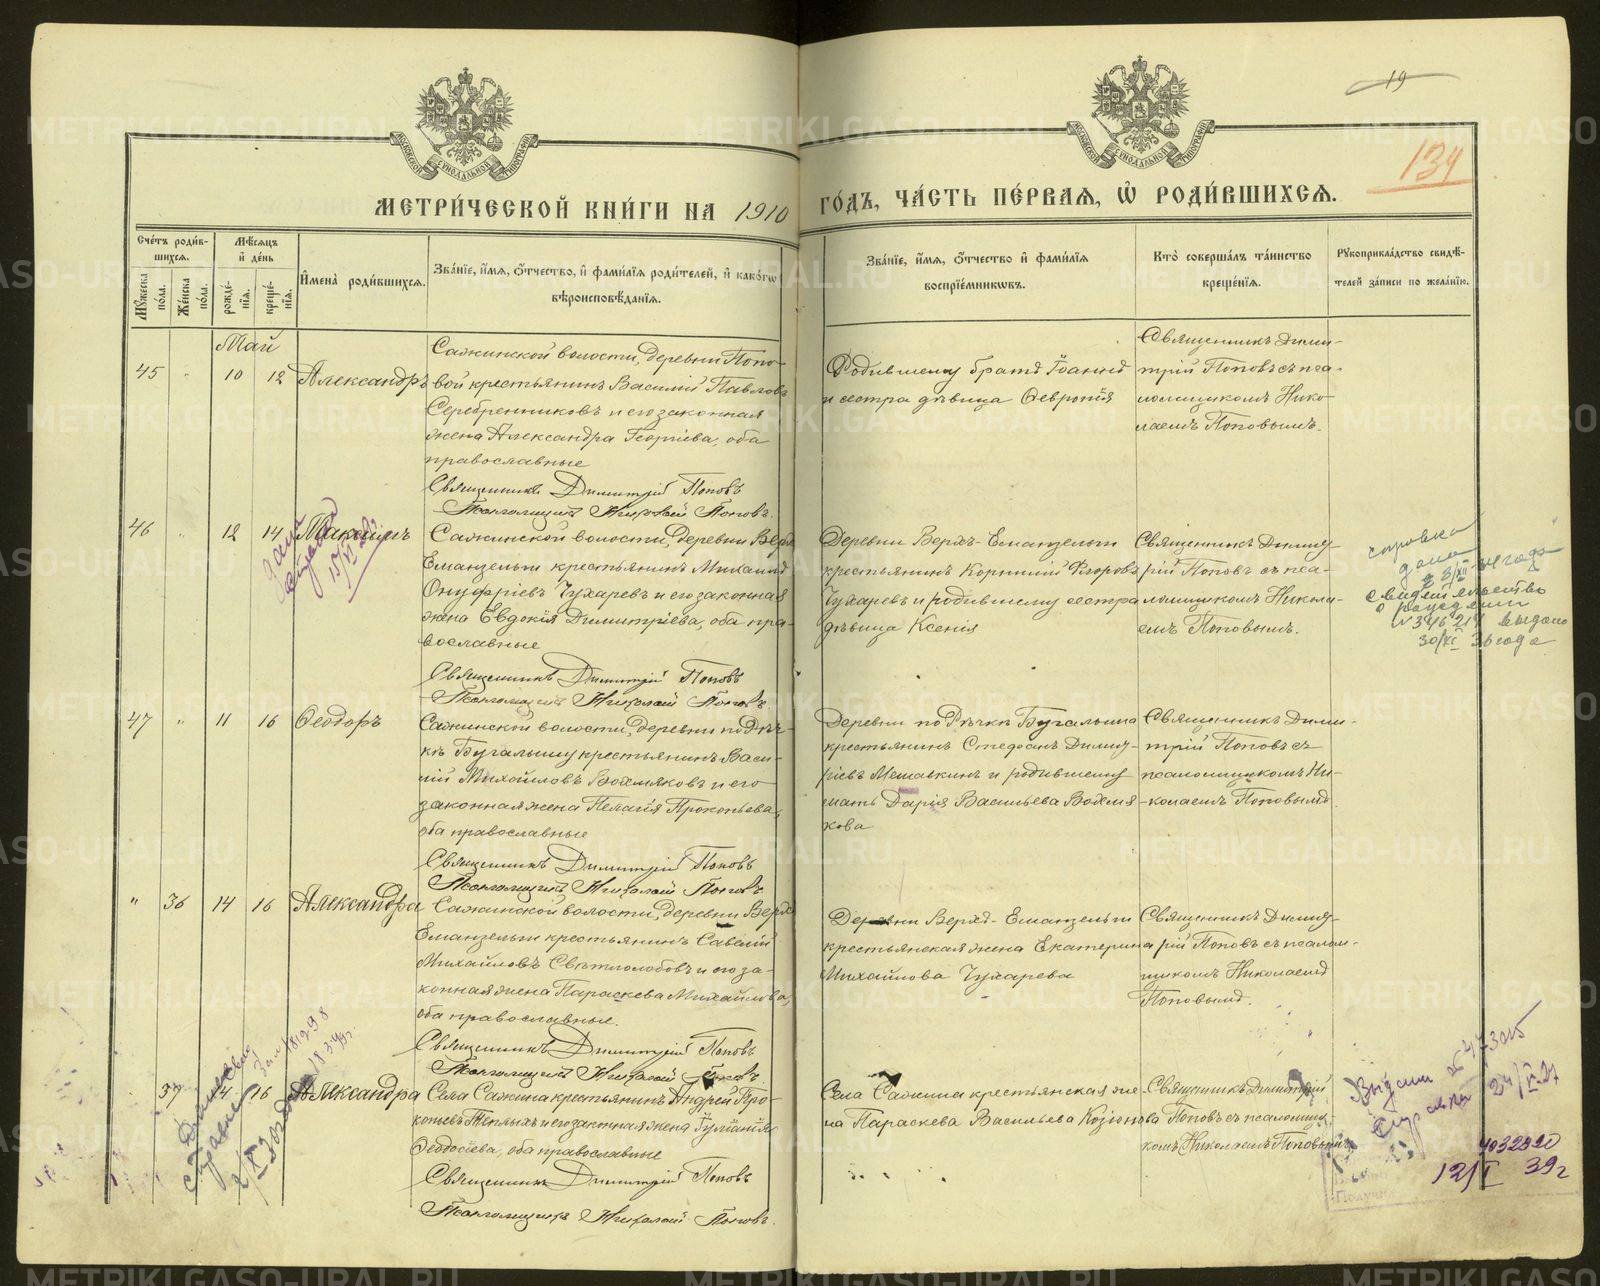 19
134
МЕТРИ́ЧЕСКОЙ КНИ́ГИ НА 1910 ГО́ДЪ, ЧА́СТЬ ПЕ́РВАЯ, Ѡ РОДИ́ВШИХСЯ.
Сче́тъ роди́вшихся.
Мꙋжеска по́ла.
Же́нска по́ла.
Мѣ́сяцъ и҆ де́нь
рожде́нїя.
креще́нїя.
И҆мена̀ роди́вшихся.
Зва́нїе, и҆́мя, ѻ҆́тчество, и҆ фами́лїѧ роди́телей, и҆ како́гѡ
вѣроисповѣ́данїѧ.
Зва́нїе, и҆́мя, ѻ҆́тчество и҆ фами́лїѧ
воспрїе́мникѡвъ.
Кто̀ соверша́лъ та́инство
креще́нїѧ.
Рꙋкоприкла́дство свидѣ́-
телей за́писи по жела́нїю.
Май
45 " 10 12 Александръ
Сажинской волости, деревни Попо-
вой крестьянинъ Василій Павловъ
Серебренниковъ и его законная
жена Александра Георгіева, оба
православные
Священникъ Димитрій Поповъ
Псаломщикъ Николай Поповъ.
Родившему братъ Іоаннъ
и сестра дѣвица Февронія
Священникъ Дими-
трій Поповъ съ пса-
ломщикомъ Нико-
лаемъ Поповымъ.
46 " 12 14 Максимъ
Сажинской волости, деревни Верхъ
Еманзельги крестьянинъ Михаилъ
Онуфріевъ Чухаревъ и его законная
жена Евдокія Димитріева, оба пра-
вославные
Священникъ Димитрій Поповъ
Псаломщикъ Николай Поповъ.
Деревни Верхъ-Еманзельги
крестьянинъ Корнилій Ѳедоровъ
Чухаревъ и родившему сестра
дѣвица Ксенія
Священникъ Димит-
рій Поповъ съ пса-
ломщикомъ Никола-
емъ Поповымъ.
справка
дана
свидетельство
о рождении
№ 346214 выдано
30/XI 36 года
47 " 11 16 Ѳеодоръ
Сажинской волости, деревни по Рѣч-
кѣ Бугалышу крестьянинъ Васи-
лій Михайловъ Вохмяковъ и его
законная жена Пелагія Прокопьева,
оба православные
Священникъ Димитрій Поповъ
Псаломщикъ Николай Поповъ
Деревни по Рѣчкѣ Бугалыша
крестьянинъ Стефанъ Димит-
ріевъ Мешавкинъ и родившему
мать Дарія Васильева Вохмя-
кова
Священникъ Дими-
трій Поповъ съ
псаломщикомъ Ни-
колаемъ Поповымъ
" 36 14 16 Александра
Сажинской волости, деревни Верхъ
Еманзельги крестьянинъ Савелій
Михайловъ Свѣтлолобовъ и его за-
конная жена Параскева Михайлова,
оба православные.
Священникъ Димитрій Поповъ
Псаломщикъ Николай Поповъ
Деревни Верхъ-Еманзельги
крестьянская жена Екатерина
Михайлова Чухарева
Священникъ Димит-
рій Поповъ съ псалом-
щикомъ Николаемъ
Поповымъ.
37 14 16 Александра
Села Сажина крестьянинъ Андрей Про-
копьевъ Теплыхъ и его законная жена Іуліанія
Ѳеодосіева, оба православные
Священникъ Димитрій Поповъ
Псаломщикъ Николай Поповъ.
Села Сажина крестьянская же-
на Параскева Васильева Козіонова
Священникъ Димитрій
Поповъ съ псаломщи-
комъ Николаемъ Поповымъ
12/I 39 г
METRIKI.GASO-URAL.RU